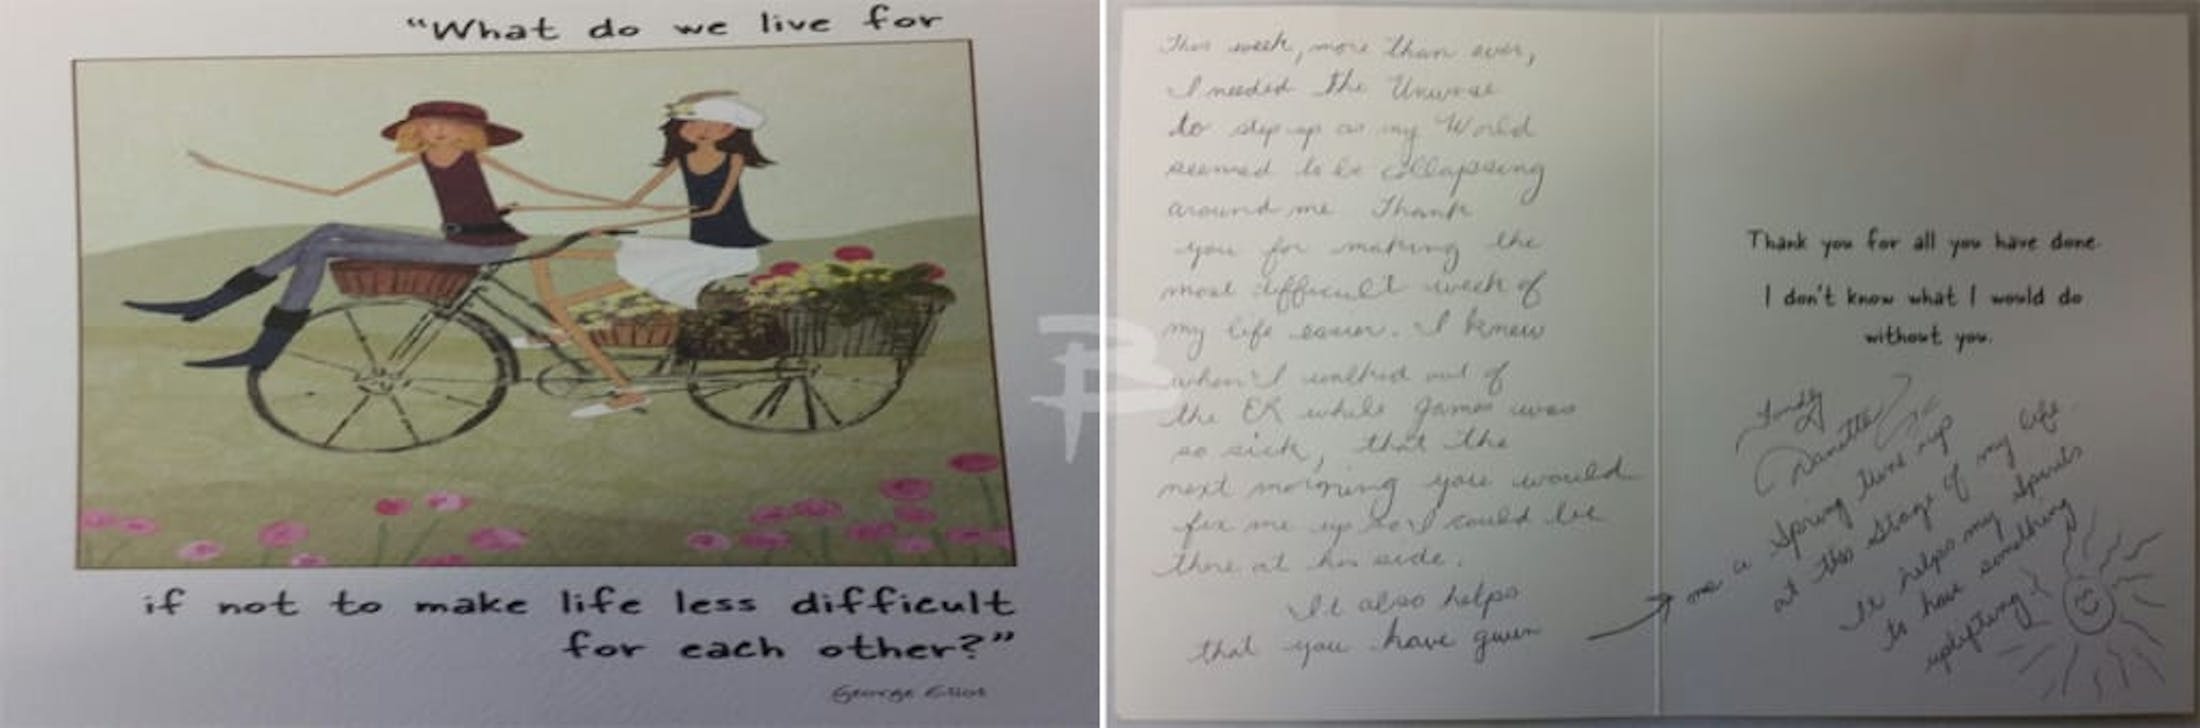 "What do we live for
if not to make life less difficult
for each other?"
George Eliot
This week, more than ever,
I needed the Universe
to step up as my World
seemed to be collapsing
around me Thank
you for making the
most difficult week of
my life easier. I knew
when I walked out of
the ER while James was
so sick, that the
next morning you would
fix me up so I could be
there at his side.
It also helps
that you have given
Thank you for all you have done.
I don't know what I would do
without you.
Fondly
Nanette
me a Spring tune up
at this stage of my life.
It helps my Spirits
to have something
uplifting